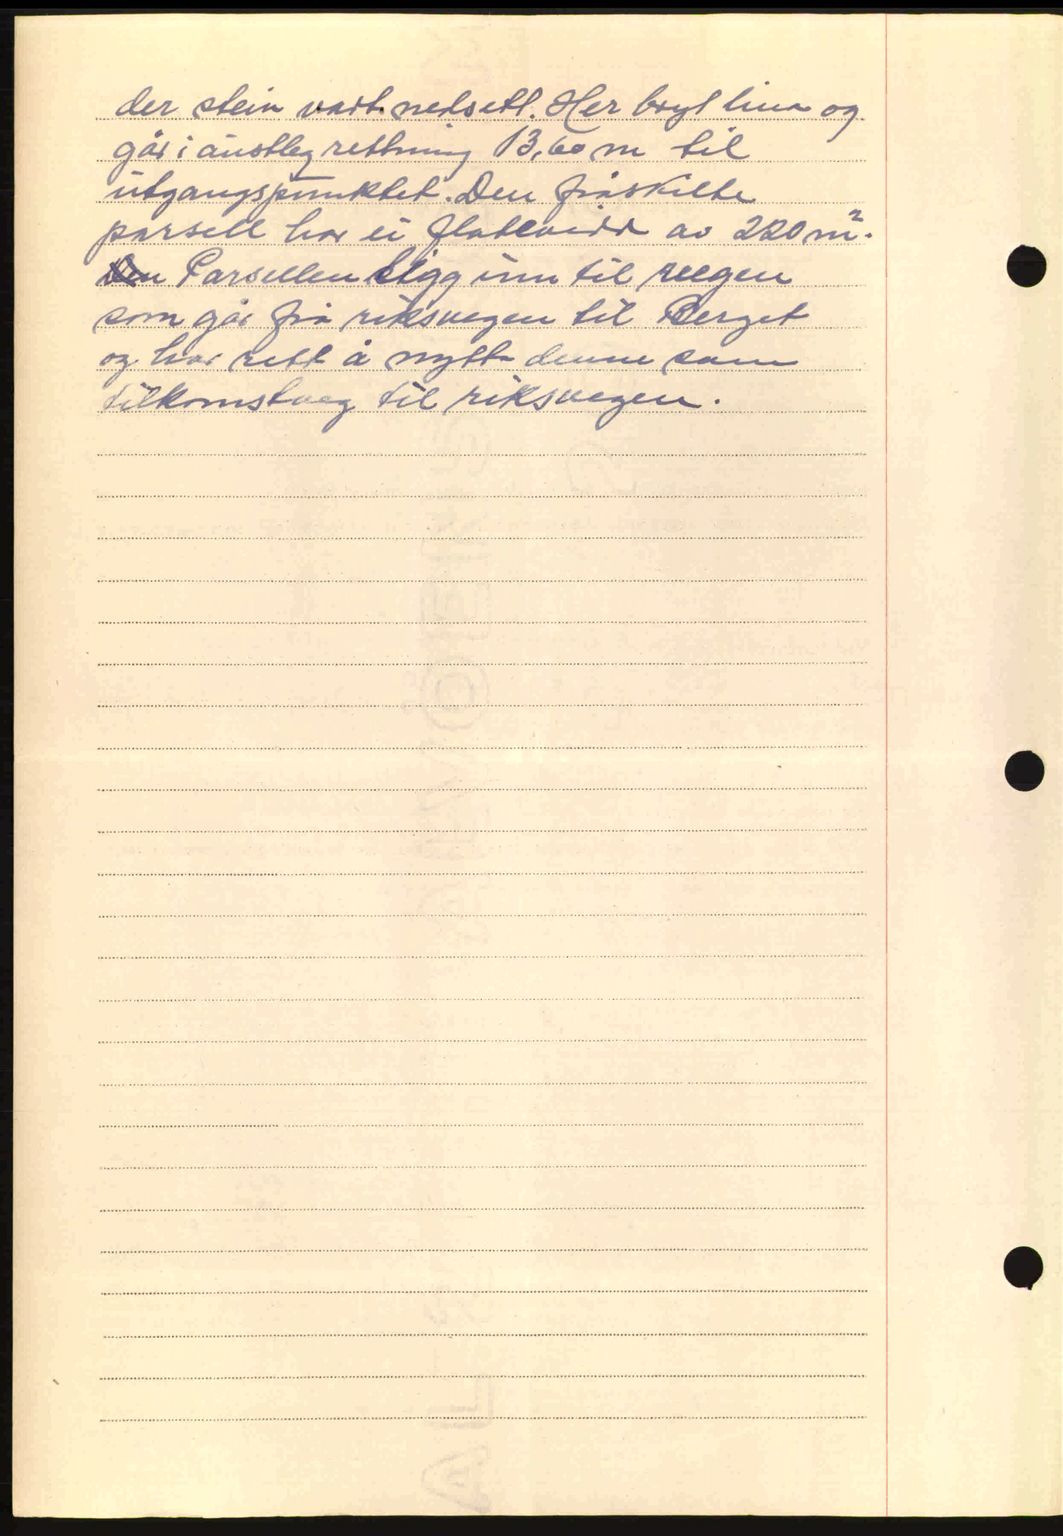 der stein vart nedsett. Her bryt lina og
går i austleg rettning 13,60 m til
utgangspunktet. Den fråskilte
parsell har ei flatevidd av 220 m².
Parsellen ligg inn til vegen
som går frå riksvegen til Berget
og har rett å nytte denne som
tilkomstveg til riksvegen.